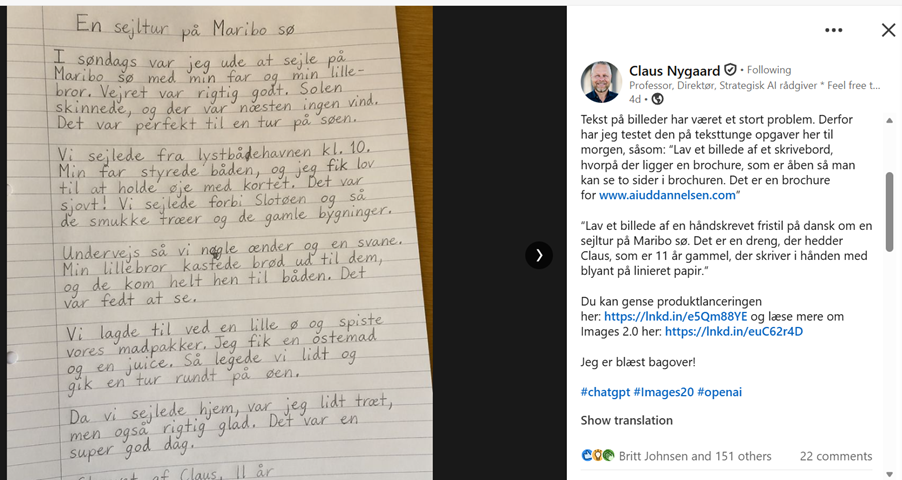 En sejltur på Maribo sø
I søndags var jeg ude at sejle på
Maribo sø med min far og min lille-
bror. Vejret var rigtig godt. Solen
skinnede, og der var næsten ingen vind.
Det var perfekt til en tur på søen.
Vi sejlede fra lystbådehavnen kl. 10.
Min far styrede båden, og jeg fik lov
til at holde øje med kortet. Det var
sjovt! Vi sejlede forbi Slotøen og så
de smukke træer og de gamle bygninger.
Undervejs så vi nogle ænder og en svane.
Min lillebror kastede brød ud til dem,
og de kom helt hen til båden. Det
var fedt at se.
Vi lagde til ved en lille ø og spiste
vores madpakker. Jeg fik en ostemad
og en juice. Så legede vi lidt og
gik en tur rundt på øen.
Da vi sejlede hjem, var jeg lidt træt,
men også rigtig glad. Det var en
super god dag.
af Claus, 11 år
Claus Nygaard • Following
Professor, Direktør, Strategisk AI rådgiver * Feel free t...
4d •
Tekst på billeder har været et stort problem. Derfor
har jeg testet den på teksttunge opgaver her til
morgen, såsom: “Lav et billede af et skrivebord,
hvorpå der ligger en brochure, som er åben så man
kan se to sider i brochuren. Det er en brochure
for www.aiuddannelsen.com”
“Lav et billede af en håndskrevet fristil på dansk om en
sejltur på Maribo sø. Det er en dreng, der hedder
Claus, som er 11 år gammel, der skriver i hånden med
blyant på linieret papir.”
Du kan gense produktlanceringen
her: https://lnkd.in/e5Qm88YE og læse mere om
Images 2.0 her: https://lnkd.in/euC62r4D
Jeg er blæst bagover!
#chatgpt #Images20 #openai
Show translation
Britt Johnsen and 151 others 22 comments